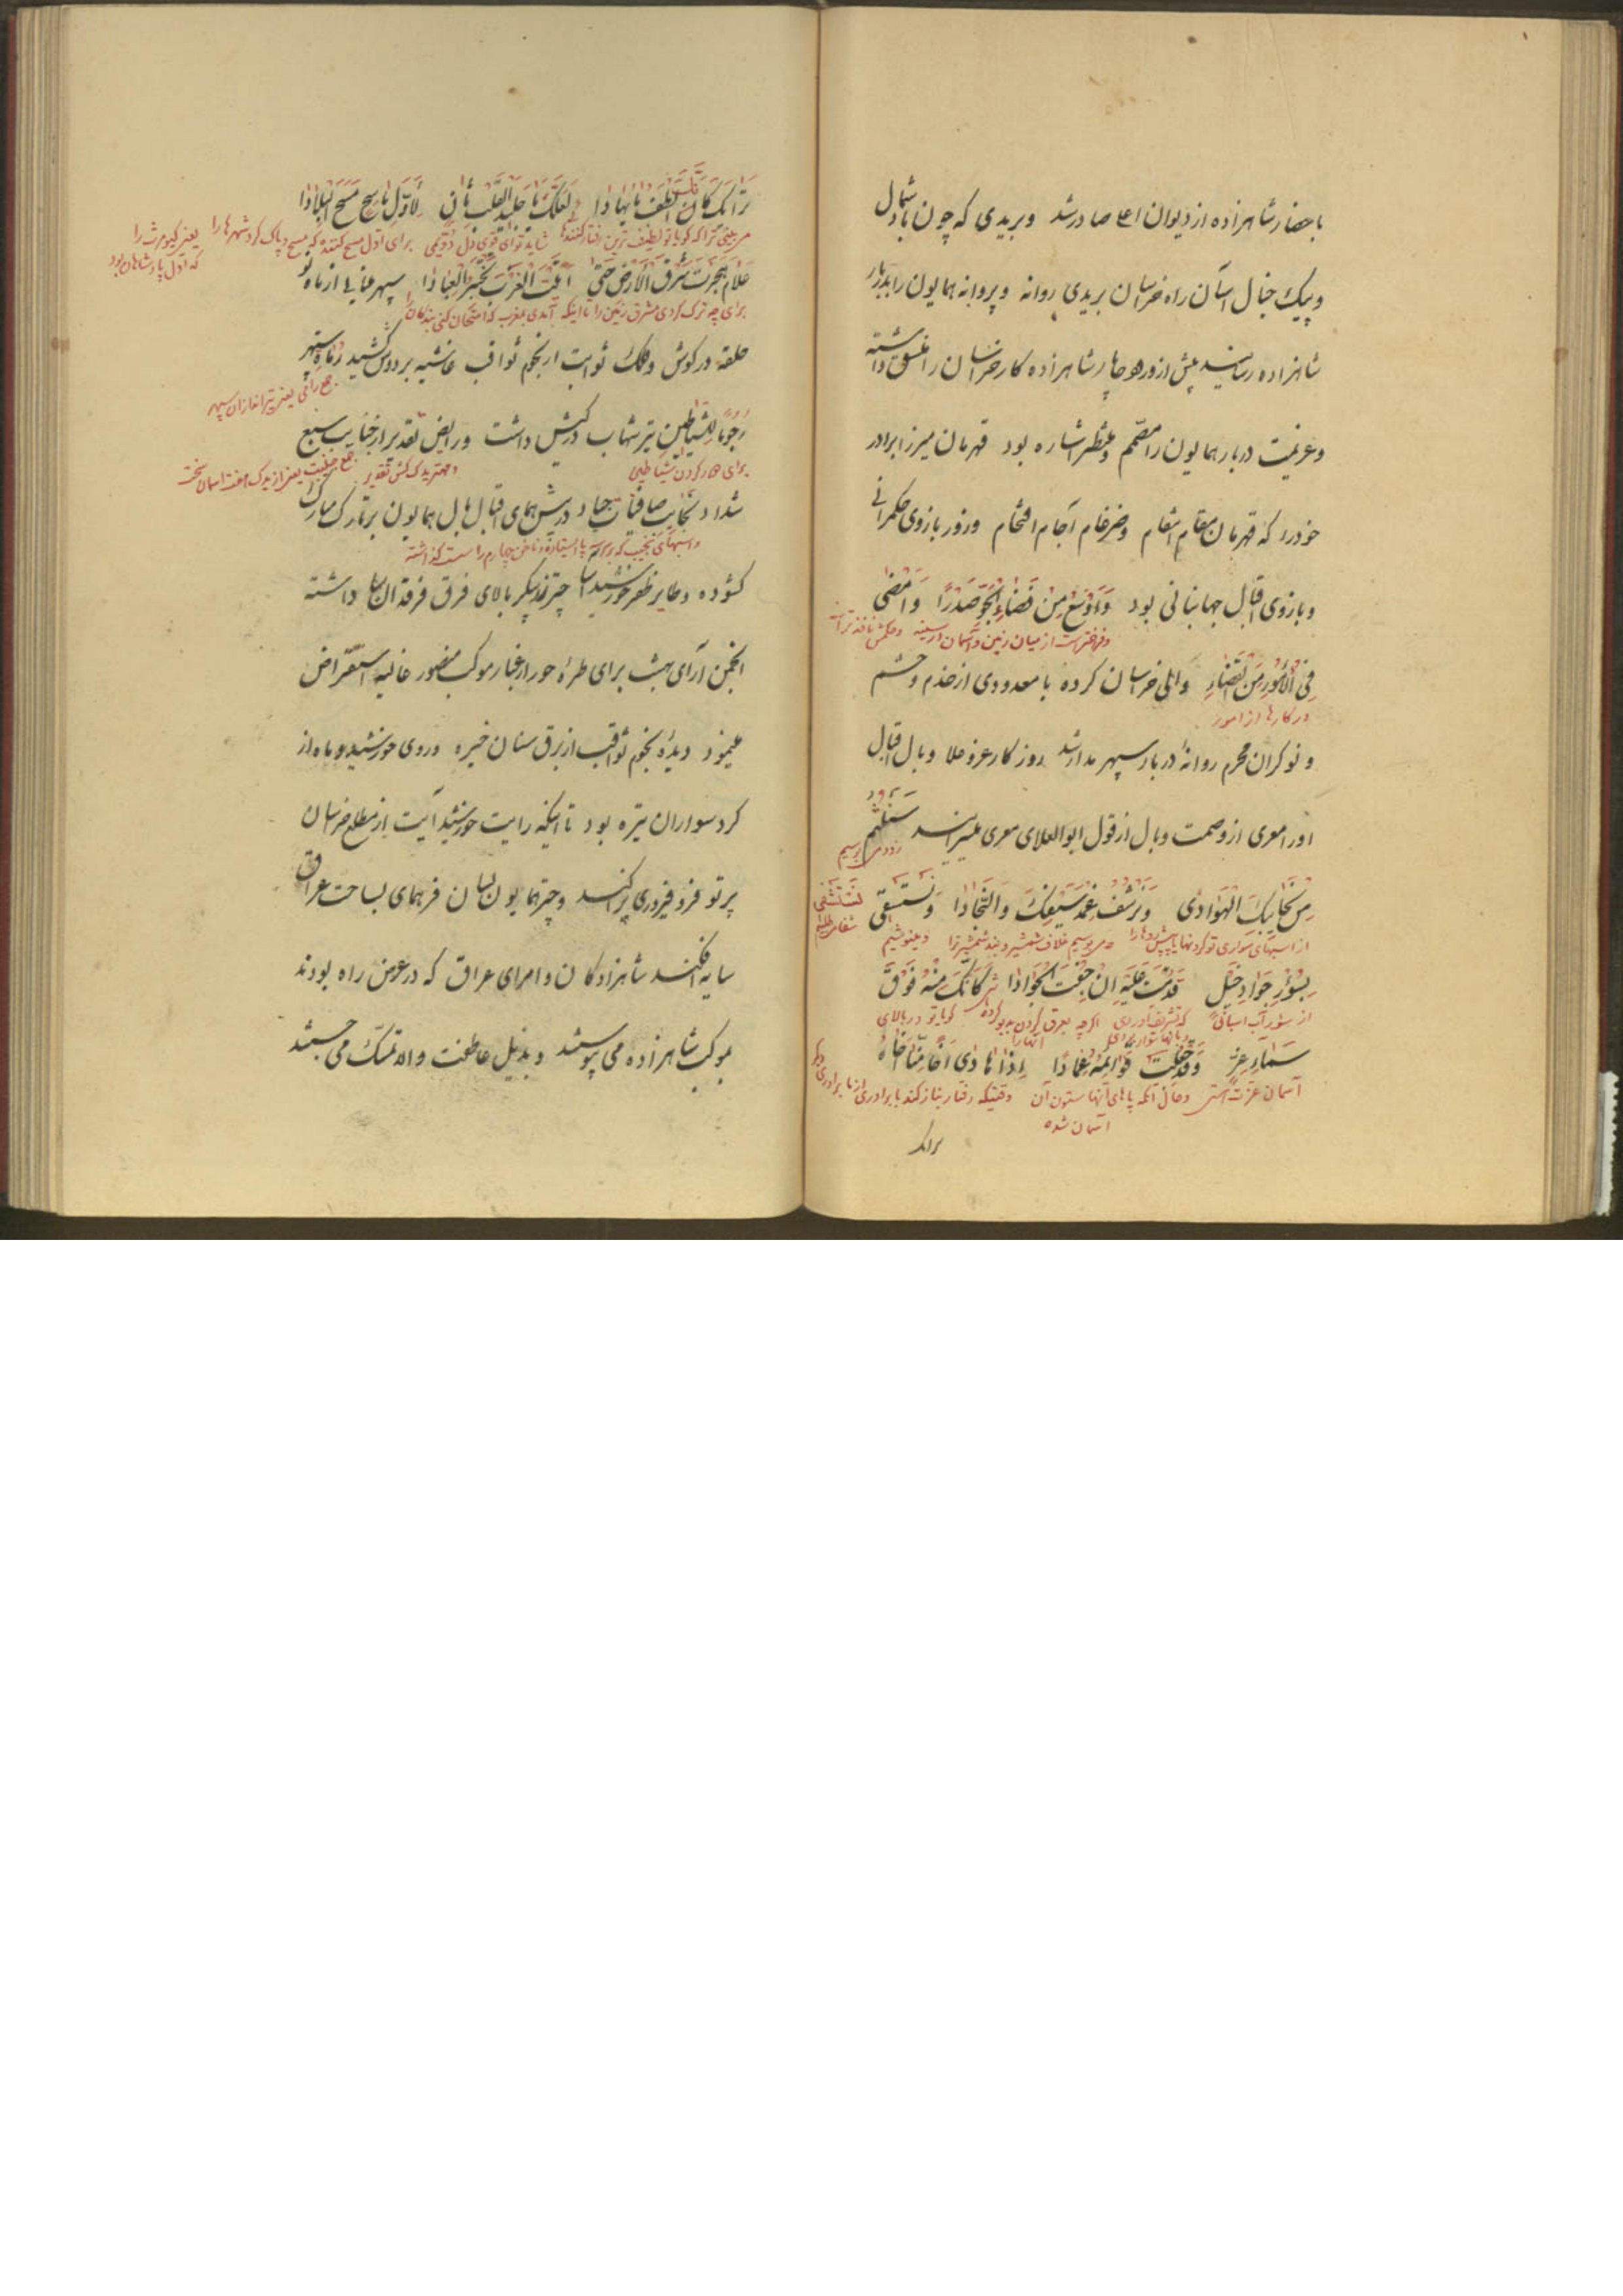 باحضار شاهزاده از دیوان اعلی صادر شد وبریدی که چون باد شمال
وپیک خیال آسان راه خراسان بریدی روانه وپروانه همایون را بدربار
شاهزاده رسانید پیش از ورود چاپار شاهزاده کار خراسان را منسق داشته
وعزیمت دربار همایون را مصمّم ومنتظر اشاره بود قهرمان میرزا برادر
خود را که قهرمان مقام انتقام وضرغام آجام اقتحام وزور بازوی حکمرانی
وبازوی اقبال جهانبانی بود وَاَوْسَعُ مِنْ فَضٰاءِ الْجَوِّ صَدْرًا وَاَمْضیٰ
وفراختر است از میان زمین وآسمان از سینه وحکمش نافذتر است
فِی الْاُمُورِ مِنَ الْقَضٰاءِ والی خراسان کرده با معدودی از خدم وحشم
در کارها از امور
ونوکران محرم روانهٔ دربار سپهر مدار شد روزگار عز وعلا وبال اقبال
او را معری از وصمت وبال از قول ابوالعلای معری میسرایند سَنَلْثِمُ
زود می بوسیم
مِنْ نَجٰائِبِکَ الْهَوٰادی وَنَرْشُفُ غِمْدَ سَیْفِکَ وَالنِّجٰادٰا وَنَسْتَسْقی
نَسْتَشْفی
شفا میطلبیم
از اسبهای سواری تو گردنها یا پیش روها را ومی بوسیم غلاف شمشیر وبند شمشیر ترا ومینوشیم
بِسُؤْرِ جَوٰادِ خَیْلٍ قَدِمْتَ عَلَیْهِ اِنْ خِفْتَ الْجَوٰادٰا کَاَنَّکَ مِنْهُ فَوْقَ
از سؤر آب اسبانی که تشریف آوردی اگرچه گویا تو در بالای
سَمٰاءِ عِزٍّ وَقَدْ جُعِلَتْ قَوٰائِمُهُ عِمٰادًا اِذٰا هٰادیٰ اَخٌ مِنّٰا اَخٰاهُ
آسمان عزت هستی وحال آنکه پاهای آنها ستون آن وقتیکه رفتار بناز کند با برادری از ما برادری دیگر
آسمان شده
تراک
تُرٰاکَ کَاَنْ اَلْطَفَ مٰا یُهٰادیٰ لَعَلَّکَ یٰا جَلیدَ الْقَلْبِ ثٰانٍ لِاَوَّلِ مٰاسِحٍ مَسَحَ الْبِلٰادٰا
می بینی ترا که گویا تو لطیف ترین رفتار کنندها شاید تو ای قوی دل دویمی برای اول مسح کننده که مسح وپاک کرد شهرها را یعنی کیومرث را
که اول پادشاهان بود
عَلٰامَ هَجَرْتَ شَرْقَ الْاَرْضِ حَتّیٰ اَتَیْتَ الْغَرْبَ تَخْتَبِرُ الْعِبٰادٰا سپهر مینایی از ماه نو
برای چه ترک کردی مشرق زمین را تا اینکه آمدی بمغرب که امتحان کنی بندگان را
حلقه در گوش وفلک ثوابت از نجوم ثواقب غاشیه بر دوش کشید رُمٰاةِ سپهر
جمع رامی یعنی تیراندازان سپهر
رُجُومًا لِلشَّیٰاطینِ تیر شهاب در کیش داشت ورایض تقدیر از جنایب سبع
برای طرد کردن شیاطین ومهتر یدک کش تقدیر جمع جنیبت یعنی از یدک هفت آسمان سخت
شداد نجایب صافنات جیاد در پیش همای اقبال بال همایون بر تارک مبارک
واسبهای نجیب که بر سه پا ایستاده وناخن چهارم را سست گذاشته
گشوده وطایر ظفر خورشید آسا چتر زرپیکر بالای فرق فرقدان سا داشته
انجمن آرای بهشت برای طرّهٔ حور از غبار موکب منصور غالیه استقراض
مینمود دیدهٔ نجوم ثواقب از برق سنان خیره وروی خورشید وماه از
گرد سواران تیره بود تا اینکه رایت خورشید آیت از مطلع خراسان
پرتو فر وفیروزی پراکند وچتر همایون بسان فر همای بساحت عراق
سایه افکند شاهزادگان وامرای عراق که در عرض راه بودند
بموکب شاهزاده می پیوستند وبذیل عاطفت والا تمسک می جستند